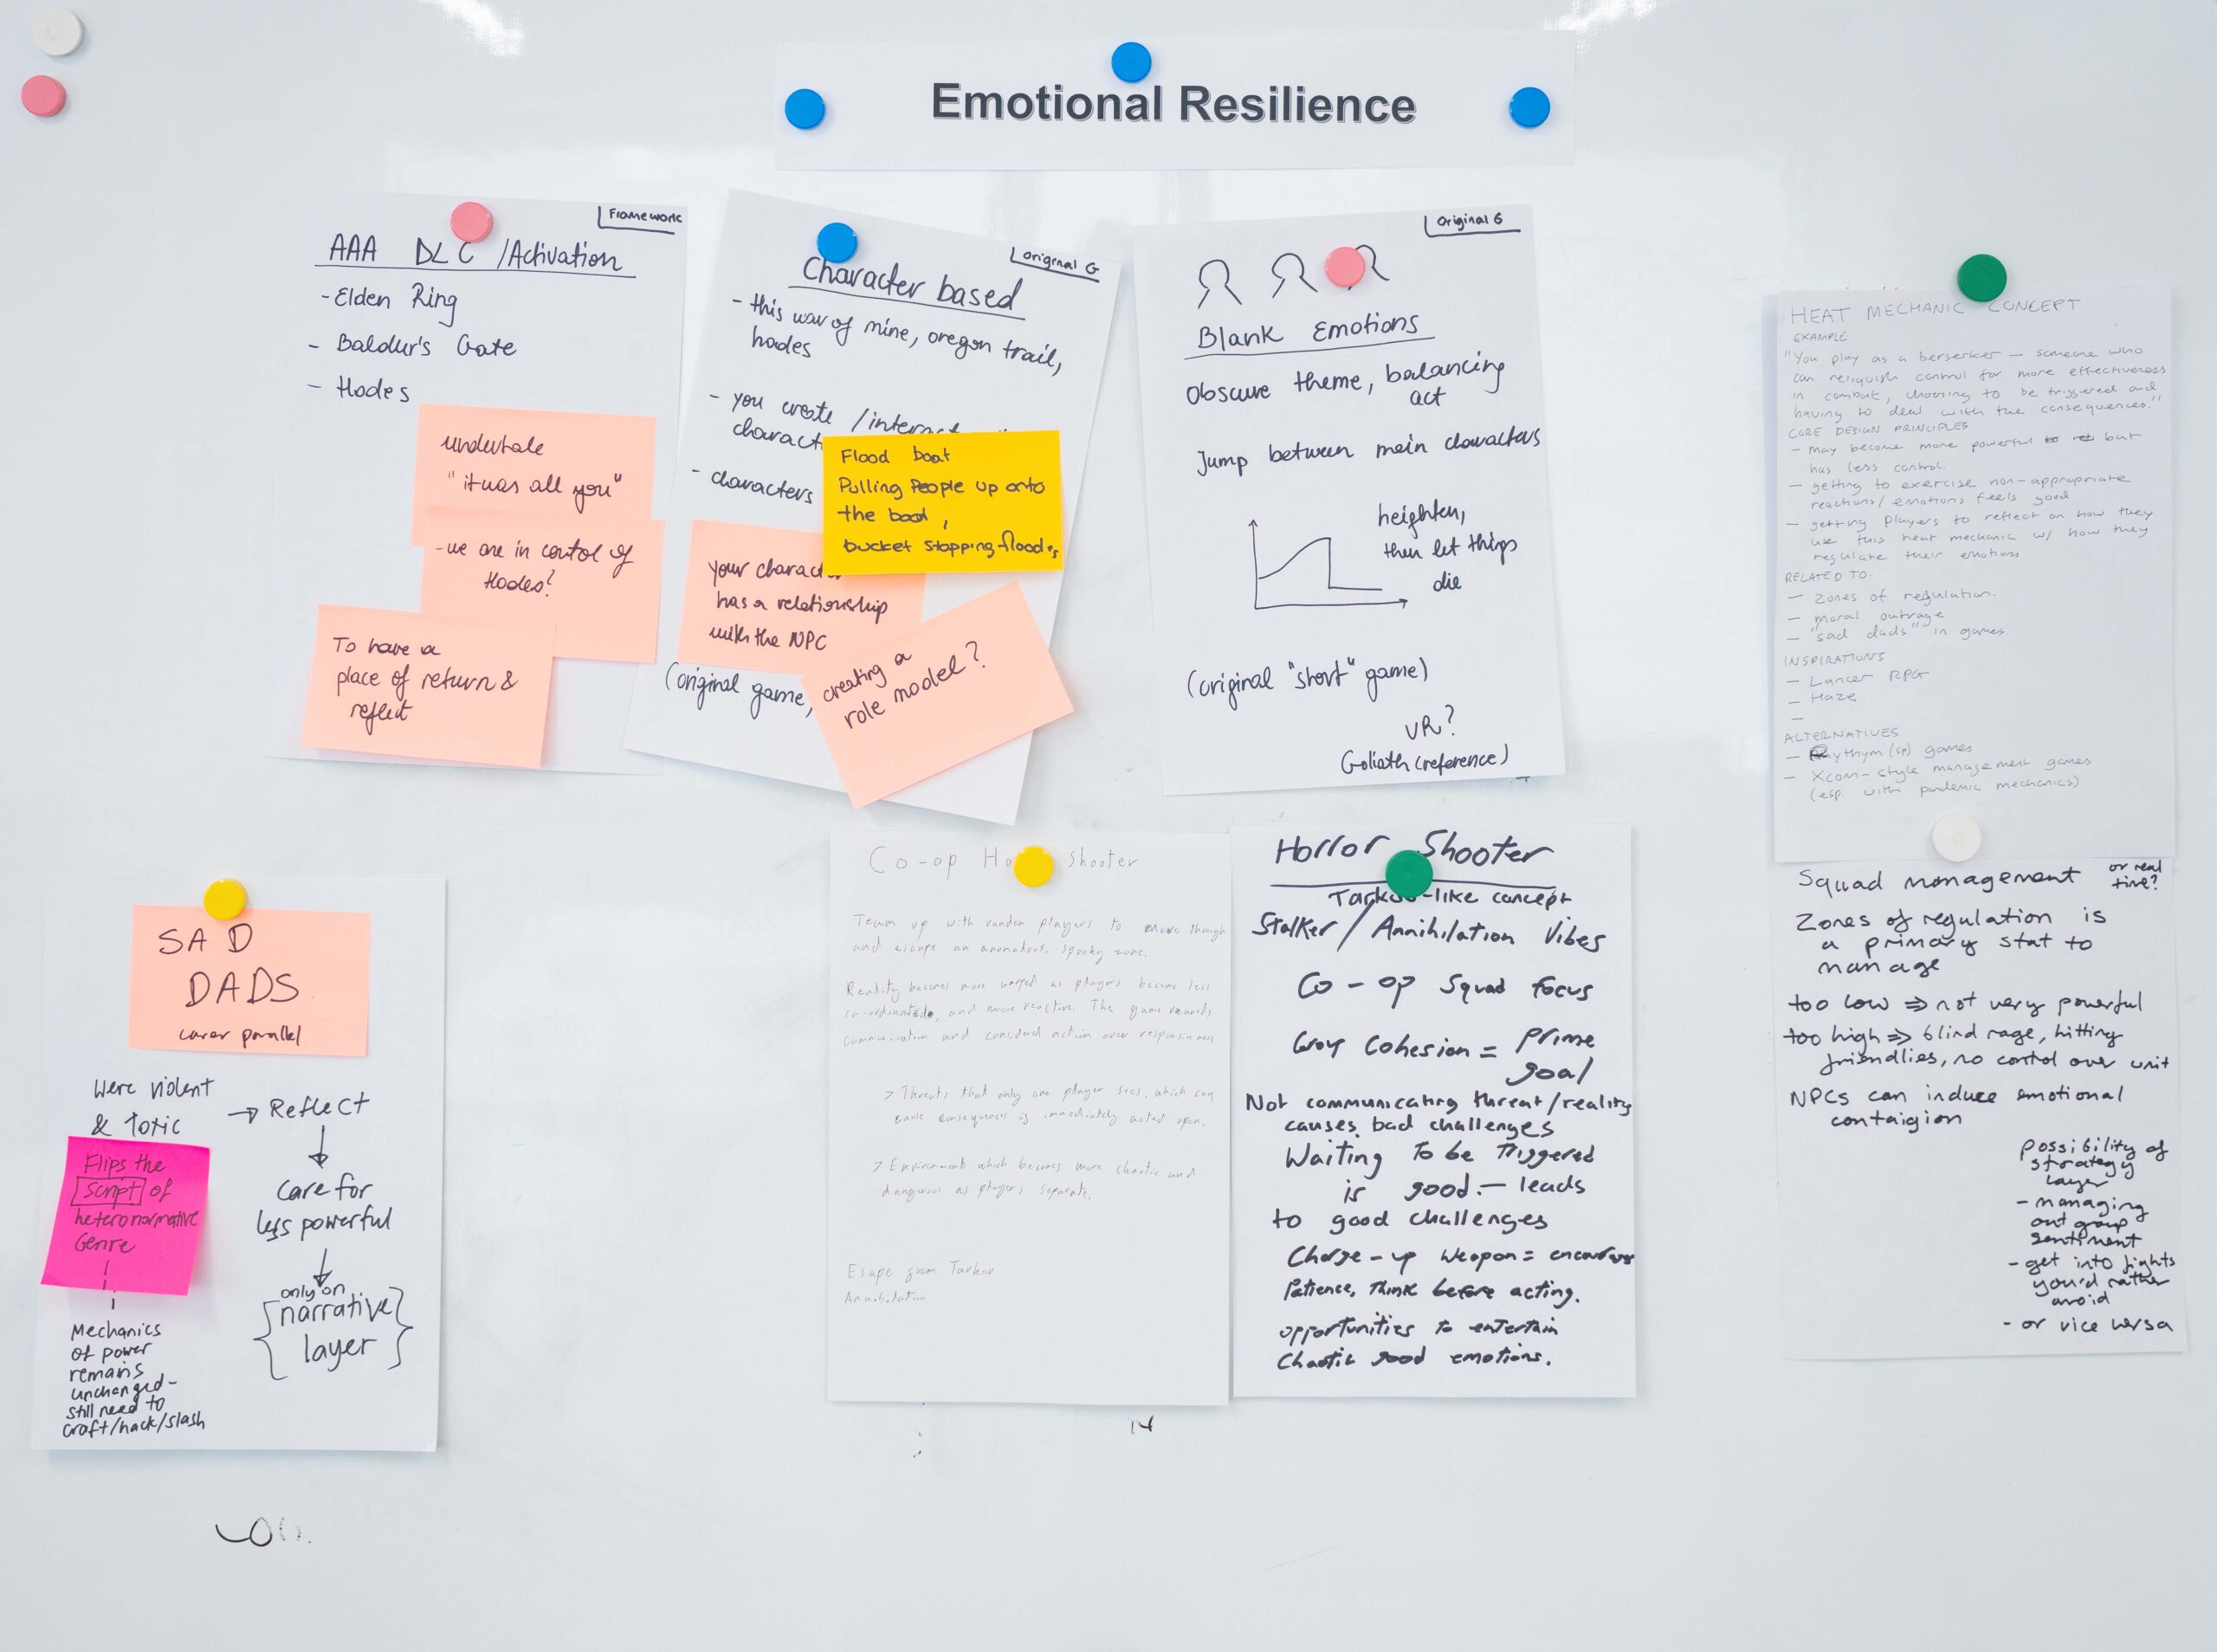 Emotional Resilience
Framework
AAA DLC /Activation
- Elden Ring
- Baldur's Gate
- Hades
undertale
"it was all you"
- we are in control of
Hades?
To have a
place of return &
reflect
Original G
Character based
- this war of mine, oregon trail,
hades
- you create /interact
charact
- characters
Flood boat
Pulling People up onto
the boat,
bucket stopping floods
your charact
has a relationship
with the NPC
(original game,
creating a
role model?
Original G
Blank Emotions
Obscure theme, balancing
act
Jump between main characters
heighten,
then let things
die
(original "short" game)
VR?
Goliath (reference)
HEAT MECHANIC CONCEPT
EXAMPLE
"You play as a berserker — someone who
can relinquish control for more effectiveness
in combat, choosing to be triggered and
having to deal with the consequences."
CORE DESIGN PRINCIPLES
- may become more powerful but
has less control.
- getting to exercise non-appropriate
reactions/emotions feels good
- getting players to reflect on how they
use this heat mechanic w/ how they
regulate their emotions
RELATED TO.
- Zones of regulation.
- moral outrage
- "sad dads" in games.
INSPIRATIONS
- Lancer RPG
- Haze
-
ALTERNATIVES
- Rythym (sp) games
- Xcom-style management games
(esp. with pandemic mechanics)
SAD
DADS
carer parallel
Were violent
& toxic
→ Reflect
Care for
less powerful
only on
{narrative
layer}
Flips the
script of
heteronormative
Genre
Mechanics
of power
remains
unchanged-
still need to
craft/hack/slash
Co-op Ho Shooter
Team up with random players to move through
and escape an anomalous, spooky zone.
Reality becomes more warped as players become less
co-ordinated, and more reactive. The game rewards
communication and considered action over responsiveness
> Threats that only one player sees, which can
cause consequences if immediately acted upon.
> Environments which becomes more chaotic and
dangerous as players separate.
Escape from Tarkov
Annihilation
Horror Shooter
Tarkov-like concept
Stalker / Annihilation Vibes
Co-op Squad focus
Group Cohesion = prime
goal
Not communicating threat/reality
causes bad challenges
Waiting To be Triggered
is good. — leads
to good challenges
Charge-up weapon =
Patience, Think before acting.
opportunities to entertain
Chaotic good emotions.
Squad management or real
time?
Zones of regulation is
a primary stat to
manage
too low ⇒ not very powerful
too high ⇒ blind rage, hitting
friendlies, no control over unit
NPCs can induce emotional
contaigion
possibility of
strategy
layer
- managing
out group
sentiment
- get into fights
you'd rather
avoid
- or vice versa